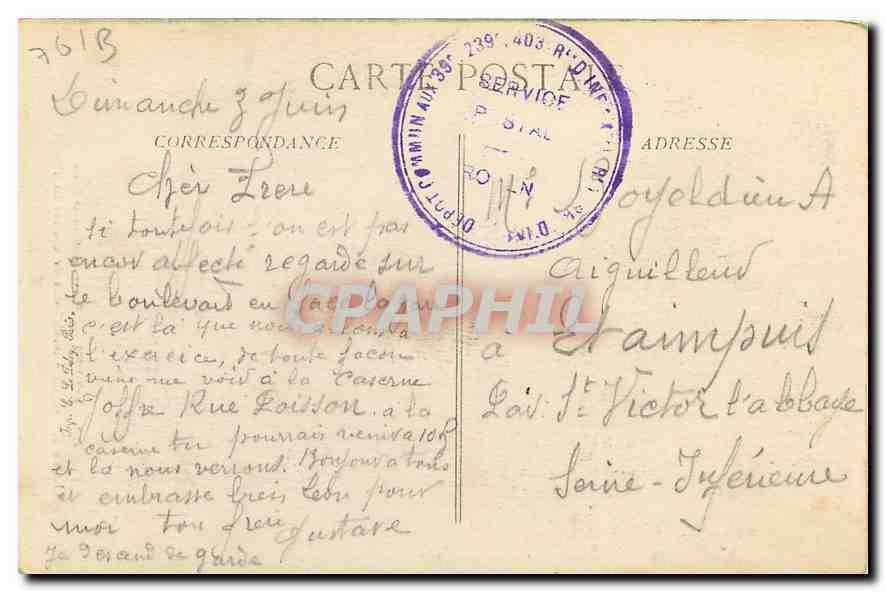 761B
CARTE POSTALE
Dimanche 3 Juin
CORRESPONDANCE
Chèr Frere
si toutefois on est pas
encor affecté regarde sur
le boulevard en face la gare
c'est la que nous allons a
l'exercice, de toute facon
viens me voir à la Caserne
Joffre Rue Poisson a la
caserne tu pourrais venir a 10h
et la nous verrons. Bonjour a tous
et embrasse bien Leon pour
moi ton frere Gustave
Je descend de garde
DÉPOT COMMUN AUX 39e, 239e, 403e R
SERVICE
POSTAL
ROUEN
ADRESSE
Mr Loyeldieu A
Aiguilleur
à Etaimpuis
Par St Victor l'abbaye
Seine-Inférieure
CPAPHIL